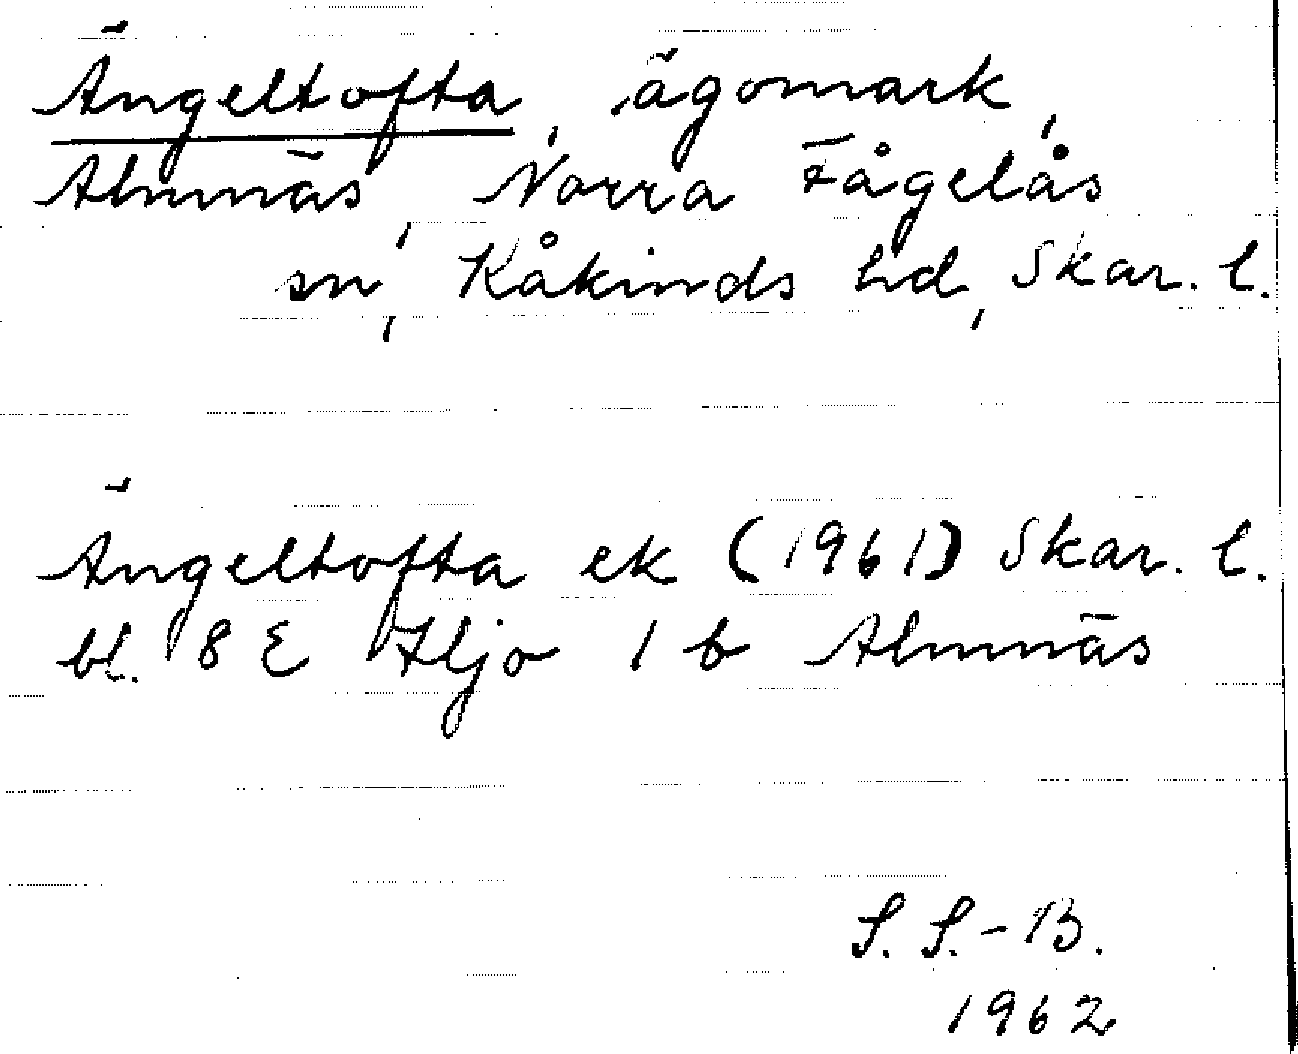 Ängeltofta, ägomark,
Almnäs, Norra Fågelås
sn, Kåkinds hd, Skar. l.
Ängeltofta ek (1961) Skar. l.
bl. 8 E Hjo 1 b Almnäs
S. S.-B.
1962